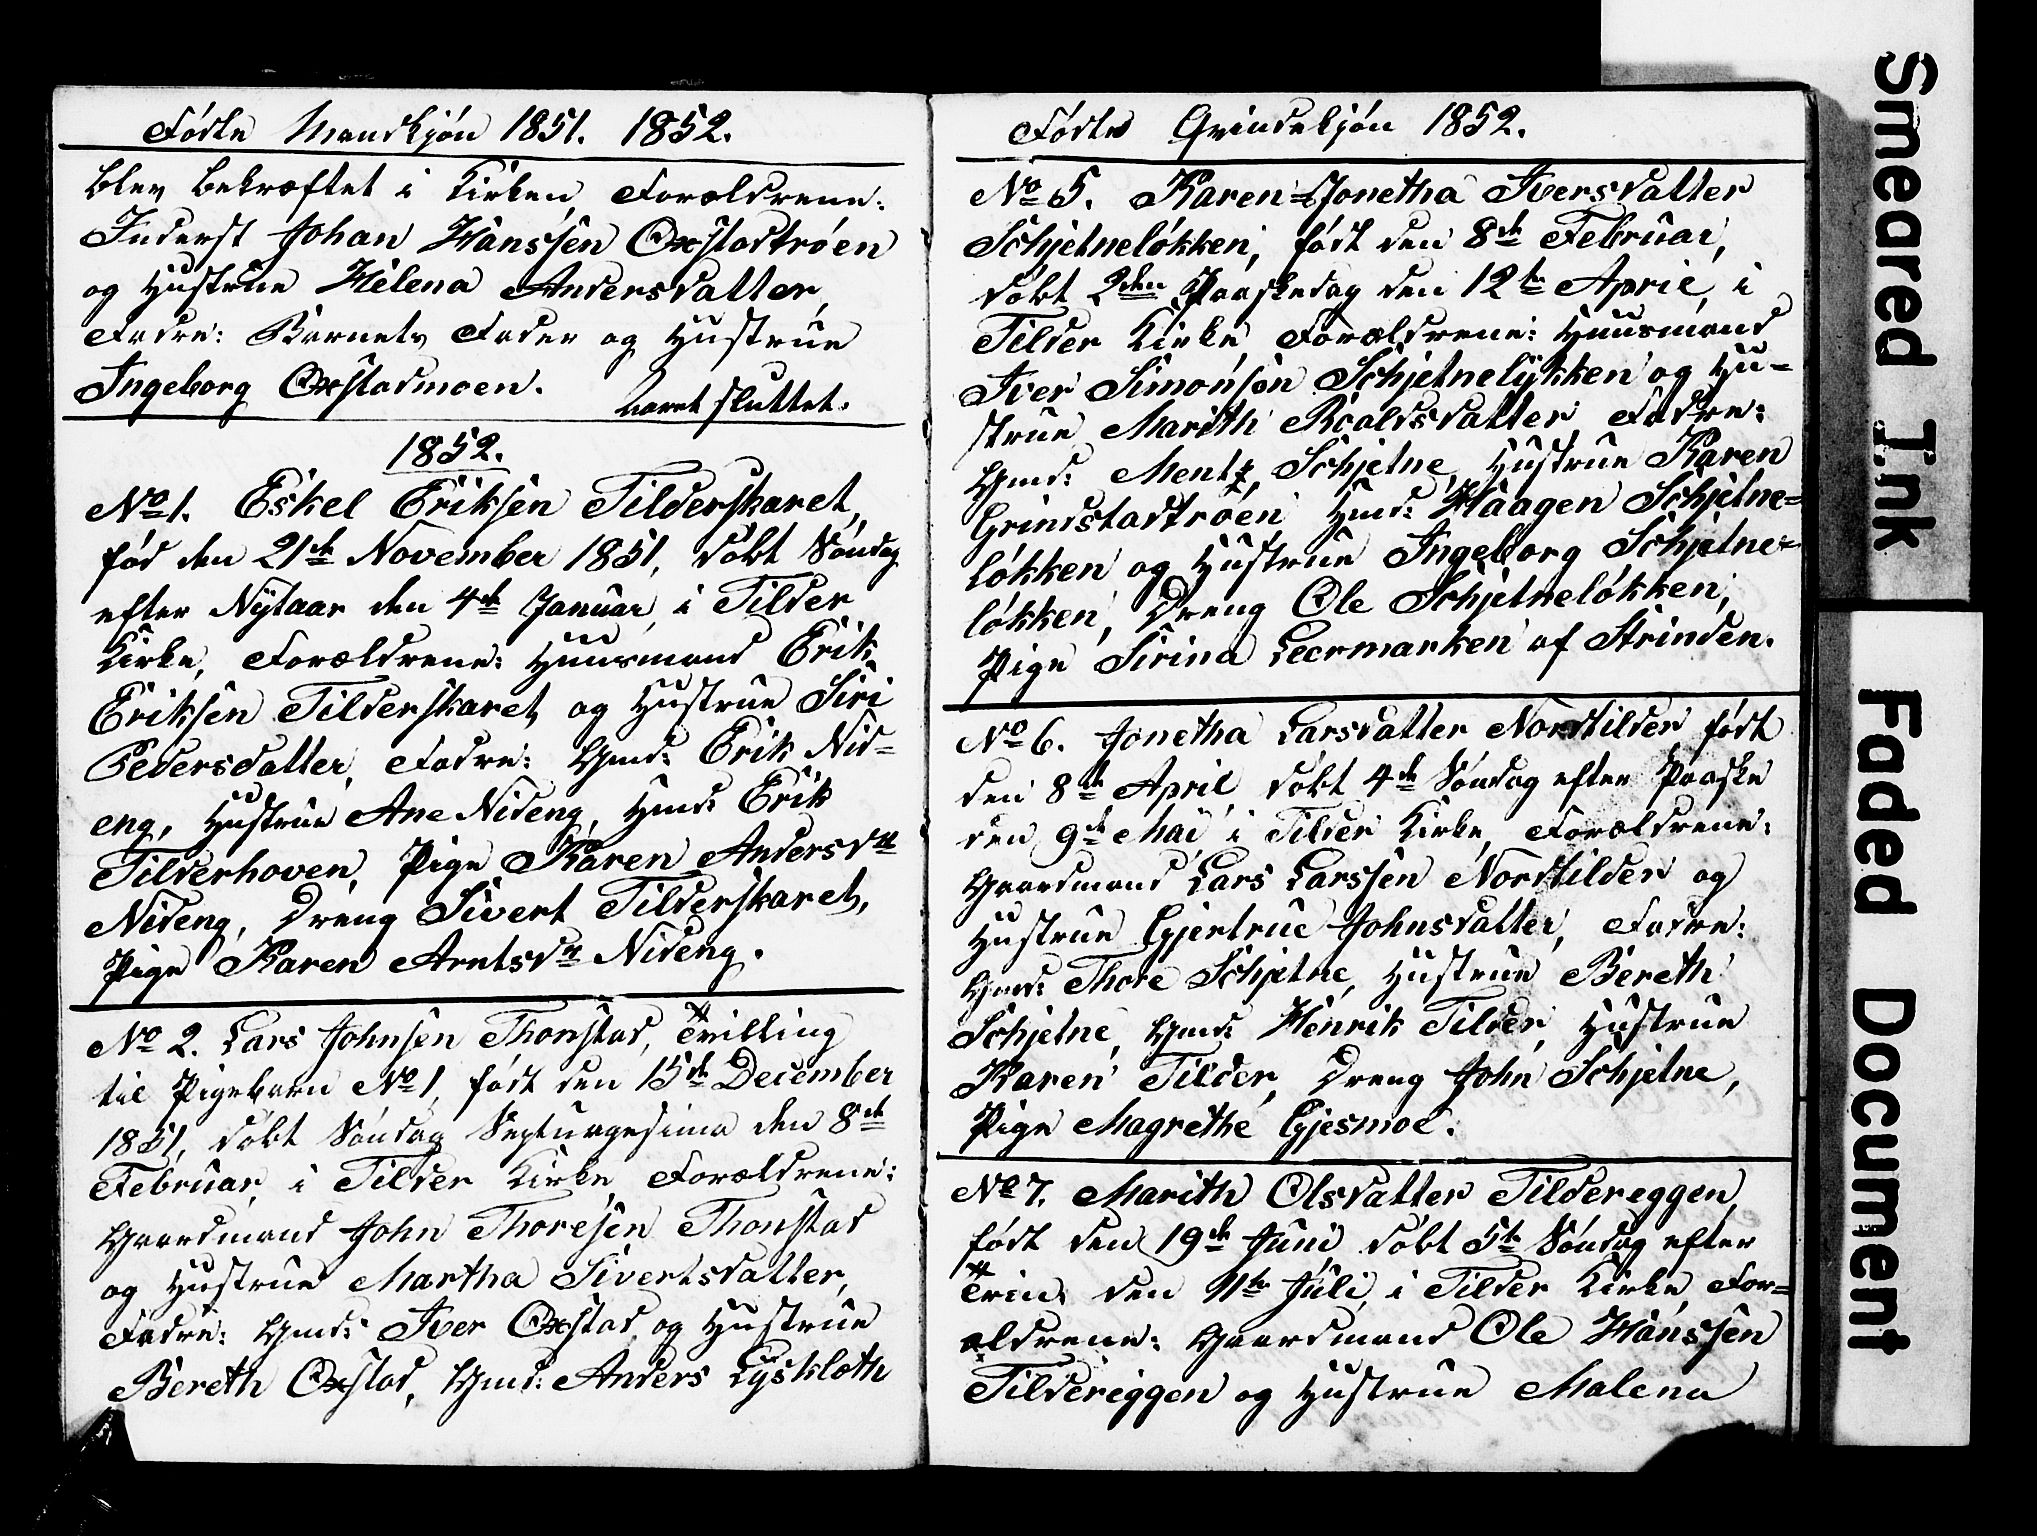 Fødte Mandkjøn 1851. 1852.
blev bekræftet i Kirken, Forældrene:
Inderst Johan Hanssen Oxstadtrøen
og Hustrue Helena Andersdatter,
Fadre: Barnets Fader og Hustrue
Ingeborg Oxstadmoen.
Aaret sluttet.
1852.
No 1. Eskel Eriksen Tilderskaret,
fød den 21de November 1851, døbt Søndag
efter Nytaar den 4de Januar, i Tilder
Kirke, Forældrene: Huusmand Erik
Eriksen Tilderskaret, og Hustrue Siri
Pedersdatter, Fadre: Gmd: Erik Nid-
eng, Hustrue Ane Nideng, Hmd: Erik
Tilderhoven, Pige Karen Andersdr
Nideng, Dreng Sivert Tilderskaret,
Pige Karen Arntsdr Nideng.
No 2. Lars Johnsen Thonstad, Tvilling
til Pigebarn No 1, født den 15de December
1851, døbt Søndag Septuagesima den 8de
Februar, i Tilder Kirke, Forældrene:
Gaardmand John Thoresen Thonstad
og Hustrue Martha Sivertsdatter,
Fadre: Gmd: Iver Oxstad, og Hustrue
Bereth Oxstad, Gmd: Anders Lyskloth
Fødte Qvindekjøn 1852.
No 5. Karen=Jonetha Iversdatter
Schjetneløkken, født den 8de Februar,
døbt 2den Paaskedag den 12te April, i
Tilder Kirke, Forældrene: Huusmand
Iver Simonsøn Schjetnelykken og Hu-
strue Marith Roaldsdatter, Fadre:
Gmd: Mentz Schjetne, Hustrue Karen
Grindstadtrøen, Hmd: Haagen Schjetne=
løkken og Hustrue Ingeborg Schjetne=
løkken, Dreng Ole Schjetneløkken,
Pige Sirina Leermarken af Strinden.
No 6. Jonetha Larsdatter Nordtilder født
den 8de April, døbt 4de Søndag efter Paaske
den 9de Mai i Tilder Kirke, Forældrene:
Gaardmand Lars Larssen Nordtilder og
Hustrue Gjertrue Johnsdatter, Fadre:
Gmd: Thore Schjetne, Hustrue Bereth
Schjetne, Gmd: Henrik Tilder, Hustrue
Karen Tilder, Dreng John Schjetne,
Pige Magrethe Gjesmoe.
No 7. Marith Olsdatter Tildereggen,
født den 19de Juni, døbt 5te Søndag efter
Trin: den 11te Juli, i Tilder Kirke, For=
ældrene: Gaardmand Ole Hanssen
Tildereggen og Hustrue Malena
Smeared Ink
Faded Document